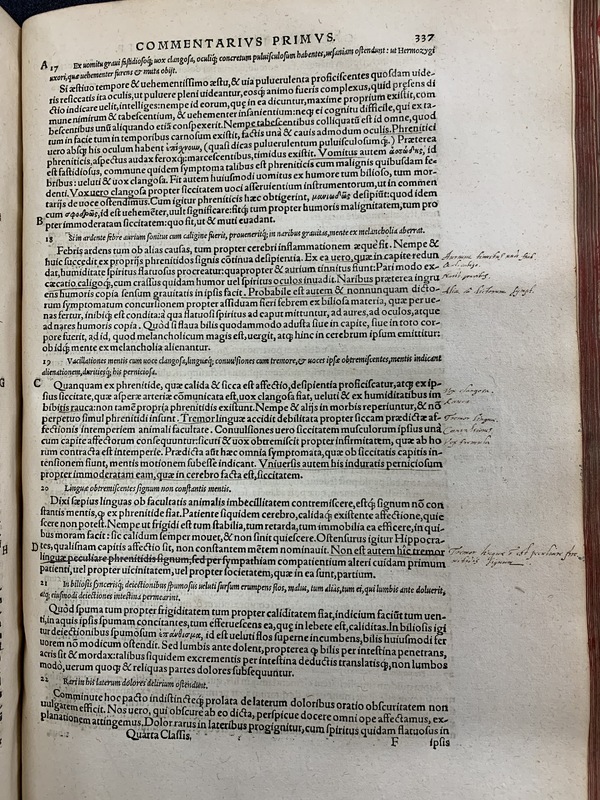 COMMENTARIVS PRIMVS. 337
A 17 Ex uomitu graui fastidiosoq́;, uox clangosa, oculiq́; concretum puluisculum habentes, uesaniam ostendunt: ut Hermozygi
uxori, quæ uehementer furens & muta obijt.
Si æstiuo tempore & uehementissimo æstu, & uia puluerulenta proficiscentes quosdam uide-
ris resiccatis ita oculis, ut puluere pleni uideantur, eosq́; animo fueris complexus, quid præsens di
ctio indicare uelit, intelliges: nempe id eorum, quę in ea dicuntur, maxime proprium existit, com
mune nimirum & tabescentium, & uehementer insanientium: neq; ei cognitu difficile, qui ex ta-
bescentibus unū aliquando etiā conspexerit. Nempe tabescentibus colliquatū est id omne, quod
tum in facie tum in temporibus carnosum existit, factis unà & cauis admodum oculis. Phrenitici
uero absq; his oculum habent (quasi dicas puluerulentum puluisculumq́;.) Præterea
phreniticis, aspectus audax feroxq́;: marcescentibus, timidus existit. Vomitus autem id
est fastidiosus, commune quidem symptoma talibus est phreniticis cum malignis quibusdam fe-
bribus: ueluti & uox clangosa. Fit autem huiusmodi uomitus ex humore tum bilioso, tum mor-
denti. Vox uero clangosa propter siccitatem uoci asseruientium instrumentorum, ut in commen
tarijs de uoce ostendimus. Cum igitur phreniticis hæc obtigerint, desipiūt: quod idem
cum id est uehemēter, uult significare: fitq́; tum propter humoris malignitatem, tum pro
B pter immoderatam siccitatem: quo fit, ut & muti euadant.
18 Si in ardente febre aurium sonitus cum caligine fuerit, proueneritq́; in naribus grauitas, mente ex melancholia aberrat.
Febris ardens tum ob alias causas, tum propter cerebri inflammationem æque fit. Nempe &
huic succedit ex proprijs phrenitidos signis cōtinua desipientia. Ex ea uero, quæ in capite redun
dat, humiditate spiritus flatuosus procreatur: quapropter & aurium tinnitus fiunt: Pari modo ex-
cæcatio caligoq́;, cum crassus quidam humor uel spiritus oculos inuadit. Naribus præterea ingru
ens humoris copia sensum grauitatis in ipsis facit. Probabile est autem & nonnunquam dicto-
rum symptomatum concursionem propter assiduam fieri febrem ex biliosa materia, quæ per ue-
nas fertur, inibiq́; est condita: à qua flatuosi spiritus ad caput mittuntur, ad aures, ad oculos, atque
ad nares humoris copia. Quòd si flaua bilis quodammodo adusta siue in capite, siue in toto cor-
pore fuerit, ad id, quod melancholicum magis est, uergit, atq; hinc in cerebrum ipsum emittitur:
ob idq́; mente ex melancholia alienantur.
19 Vacillationes mentis cum uoce clangosa, linguæq́; conuulsiones cum tremore, & uoces ipsæ obtremiscentes, mentis indicant
alienationem, duritieq́; his perniciosa.
C Quanquam ex phrenitide, quæ calida & sicca est affectio, desipientia proficiscatur, atq; ex ip-
sius siccitate, quæ asperæ arteriæ cōmunicata est, uox clangosa fiat, ueluti & ex humiditatibus im
bibitis rauca: non tamē propria phrenitidis existunt. Nempe & alijs in morbis reperiuntur, & nō
perpetuo simul phrenitidi insunt. Tremor linguæ accidit debilitata propter siccam prædictæ af-
fectionis intemperiem animali facultate. Conuulsiones uero siccitatem musculorum ipsius unà
cum capite affectorum consequuntur: sicuti & uox obtremiscit propter infirmitatem, quæ ab ho
rum contracta est intemperie. Prædicta aūt hæc omnia symptomata, quæ ob siccitatis capitis in-
tensionem fiunt, mentis motionem subesse indicant. Vniuersis autem his induratis perniciosum
propter immoderatam eam, quæ in cerebro facta est, siccitatem.
20 Linguæ obtremiscentes signum non constantis mentis.
Dixi sæpius linguas ob facultatis animalis imbecillitatem contremiscere, estq́; signum nō con
stantis mentis, q; ex phrenitide fiat. Patiente siquidem cerebro, calidaq́; existente affectione, quie
scere non potest. Nempe ut frigidi est tum stabilia, tum retarda, tum immobilia ea efficere, in qui-
bus moram facit: sic calidum semper mouet, & non sinit quiescere. Ostensurus igitur Hippocra-
D tes, qualisnam capitis affectio sit, non constantem mētem nominauit. Non est autem hic tremor
linguæ peculiare phrenitidis signum, sed per sympathiam compatientium alteri cuidam primum
patienti, uel propter uicinitatem, uel propter societatem, quæ in ea sunt, partium.
21 In biliosis syncerisq́; deiectionibus spumosus ueluti sursum erumpens flos, malus, tum alias, tum ei, qui lumbis ante doluerit,
atq; eiusmodi deiectiones intestina permearint.
Quòd spuma tum propter frigiditatem tum propter caliditatem fiat, indicium faciūt tum uen-
ti, in aquis ipsis spumam concitantes, tum efferuescens ea, quę in lebete est, caliditas. In biliosis igi
tur deiectionibus spumosum id est ueluti flos superne incumbens, bilis huiusmodi fer
uorem nō modicum ostendit. Sed lumbis ante dolent, propterea q; bilis per intestina penetrans,
acris sit & mordax: talibus siquidem excrementis per intestina deductis translatisq́;, non lumbos
modò, uerum quoq; & reliquas partes dolores subsequuntur.
22 Rari in his laterum dolores delirium ostendunt.
Comminute hoc pacto indistincteq́; prolata de laterum doloribus oratio obscuritatem non
uulgarem efficit. Nos uero, qui obscure ab eo dicta, perspicue docere omni ope affectamus, ex-
planationem attingemus. Dolor rarus in lateribus progignitur, cum spiritus quidam flatuosus in
Quarta Classis. F ipsis
Vox clangosa.
Rauca.
Tremor linguæ.